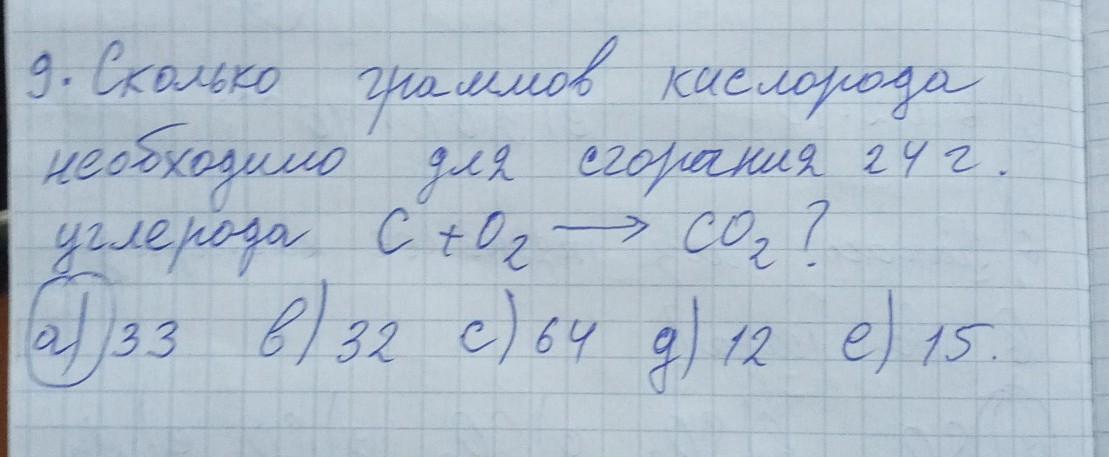 9. Сколько граммов кислорода
необходимо для сгорания 24 г.
углерода C + O₂ → CO₂?
а) 33 в) 32 с) 64 д) 12 е) 15.